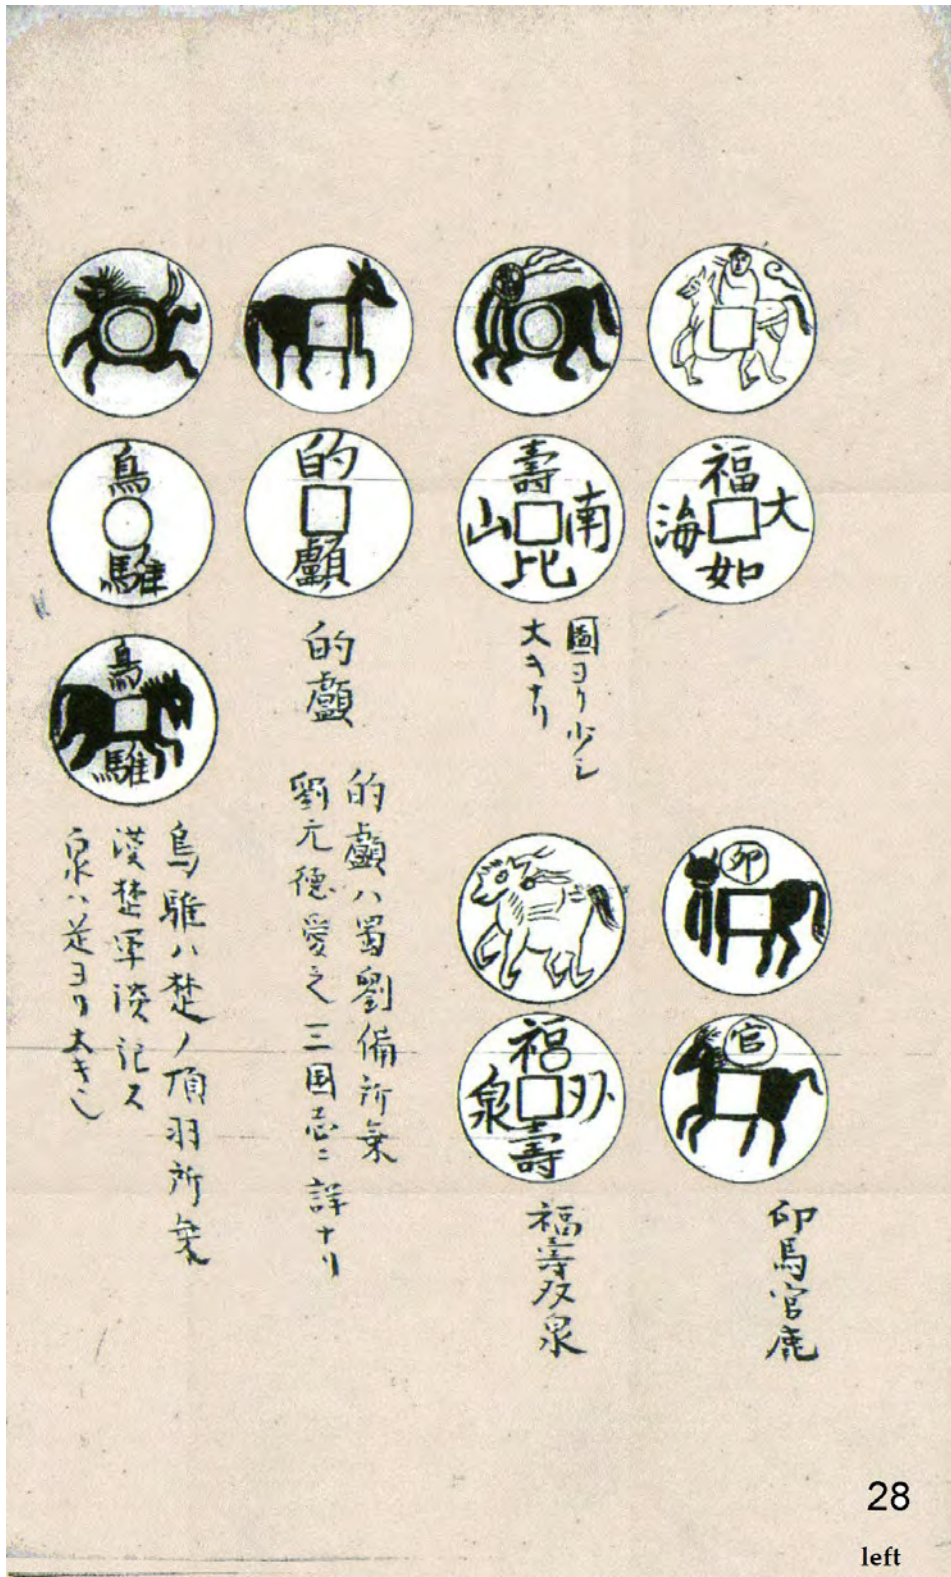 福
大
海
如
壽
南
山
比
圖ヨリ少シ
大キナリ
卯
官
卯馬官鹿
福
双
泉
壽
福壽双泉
的
顱
的顱
的顱ハ蜀劉備所乗
劉元徳愛之三国志ニ詳ナリ
烏
騅
烏
騅
烏騅ハ楚ノ項羽所乗
漢楚軍談記ス
泉ハ是ヨリ大キシ
28
left